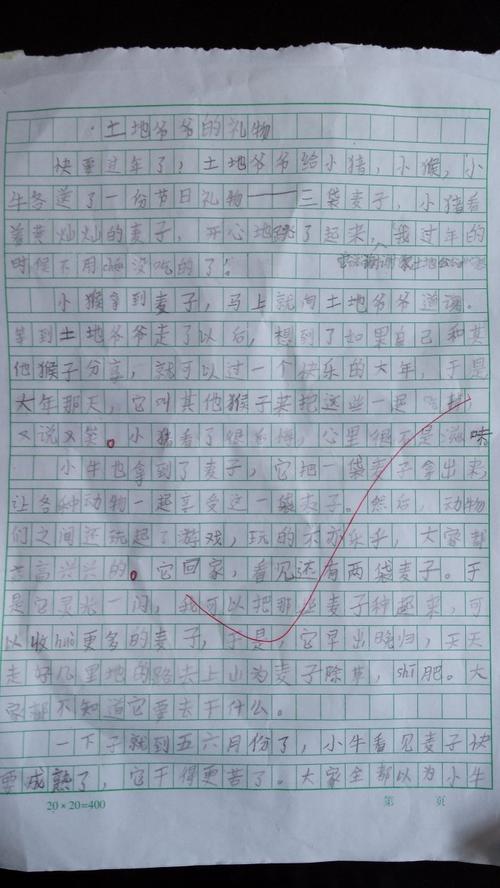 土地爷爷的礼物
快要过年了，土地爷爷给小猪，小猴，小
牛各送了一份节日礼物——三袋麦子，小猪看
着黄灿灿的麦子，开心地跳了起来，我过年的
时候不用 没吃的了！
小猴拿到麦子，马上就向土地爷爷道谢。
等到土地爷爷走了以后，想到了如果自己和其
他猴子分享，就可以过一个快乐的大年，于是
大年那天，它叫其他猴子来把这些一起
又说又笑。小猪看了很后悔，心里很不是滋味
小牛也拿到了麦子，它把一袋麦子拿出来，
让各种动物一起享受这一袋麦子。然后，动物
们之间还玩起了游戏，玩的不亦乐乎，大家都
高高兴兴的。它回家，看见还有两袋麦子。于
是它灵光一闪，我可以把那些麦子种起来，可
以收huò更多的麦子，于是，它早出晚归，天天
走好几里地的路去上山为麦子除草，shī肥。大
家都不知道它要去干什么。
一下子就到五六月份了，小牛看见麦子快
要成熟了，它干得更苦了。大家全部以为小牛
20×20=400
第 页